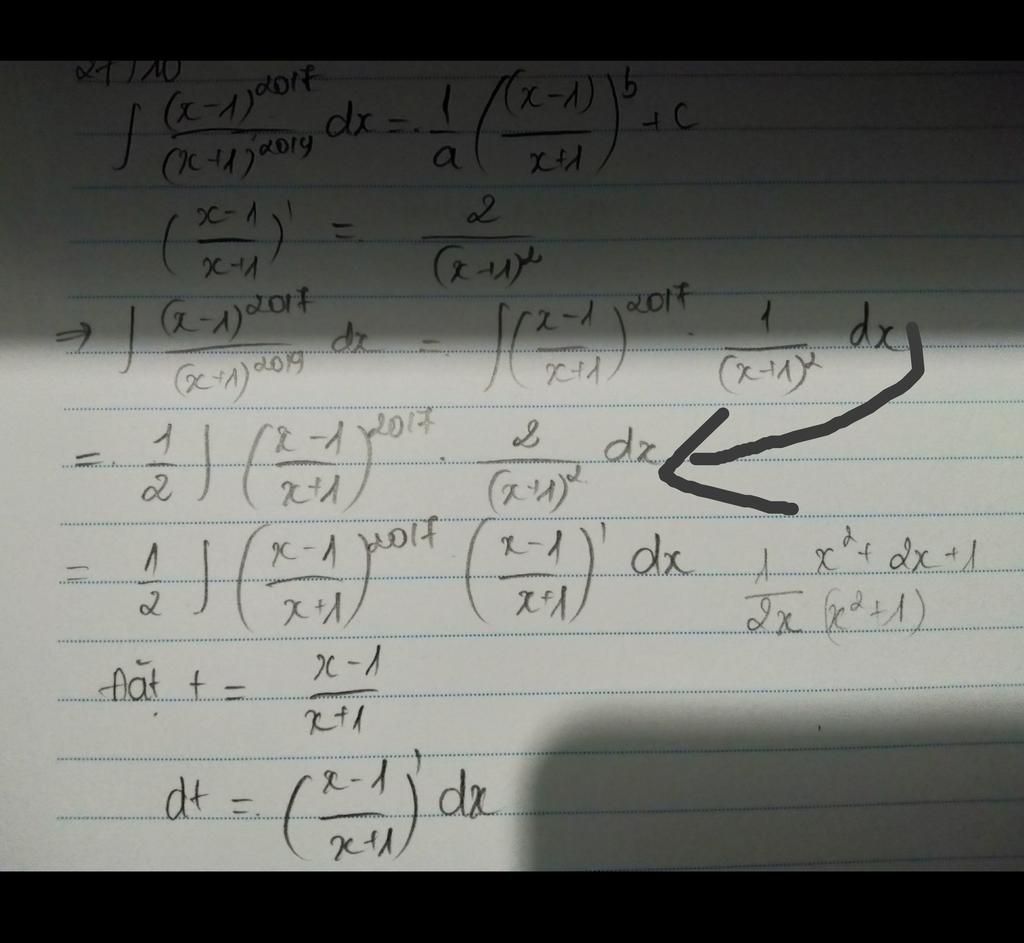 ∫ (x-1)^2017 / (x+1)^2019 dx = 1/a ((x-1) / x+1)^b + C
(x-1 / x+1)' = 2 / (x+1)^2
⇒ ∫ (x-1)^2017 / (x+1)^2019 dx = ∫ (x-1 / x+1)^2017 . 1 / (x+1)^2 dx
= 1/2 ∫ (x-1 / x+1)^2017 . 2 / (x+1)^2 dx
= 1/2 ∫ (x-1 / x+1)^2017 (x-1 / x+1)' dx
x^2 + 2x + 1
1 / 2x (x^2+1)
Đặt t = x-1 / x+1
dt = (x-1 / x+1)' dx